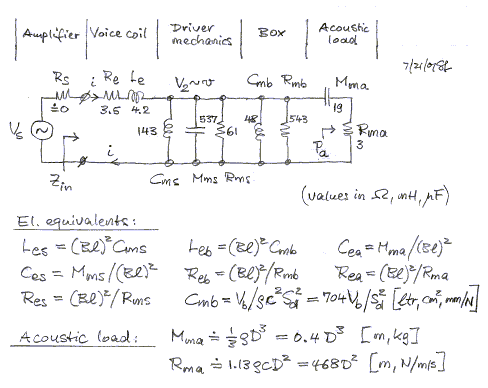 Amplifier | Voice coil | Driver mechanics | Box | Acoustic load
7/21/01 SL
Rs i Re Le V₂~v Cmb Rmb Mma
≐0 3.5 4.2 143 537 61 48 543 19 Rma 3
Vs Pa
Zin i Cms Mms Rms
(values in Ω, mH, μF)
El. equivalents:
Les = (Bl)² Cms Leb = (Bl)² Cmb Cea = Mma/(Bl)²
Ces = Mms/(Bl)² Reb = (Bl)²/Rmb Rea = (Bl)²/Rma
Res = (Bl)²/Rms Cmb = Vb/ρc²Sd² = 704 Vb/Sd² [ltr, cm², mm/N]
Acoustic load: Mma ≐ ⅓ρD³ = 0.4 D³ [m, kg]
Rma ≐ 1.13ρcD² = 468D² [m, N/m/s]